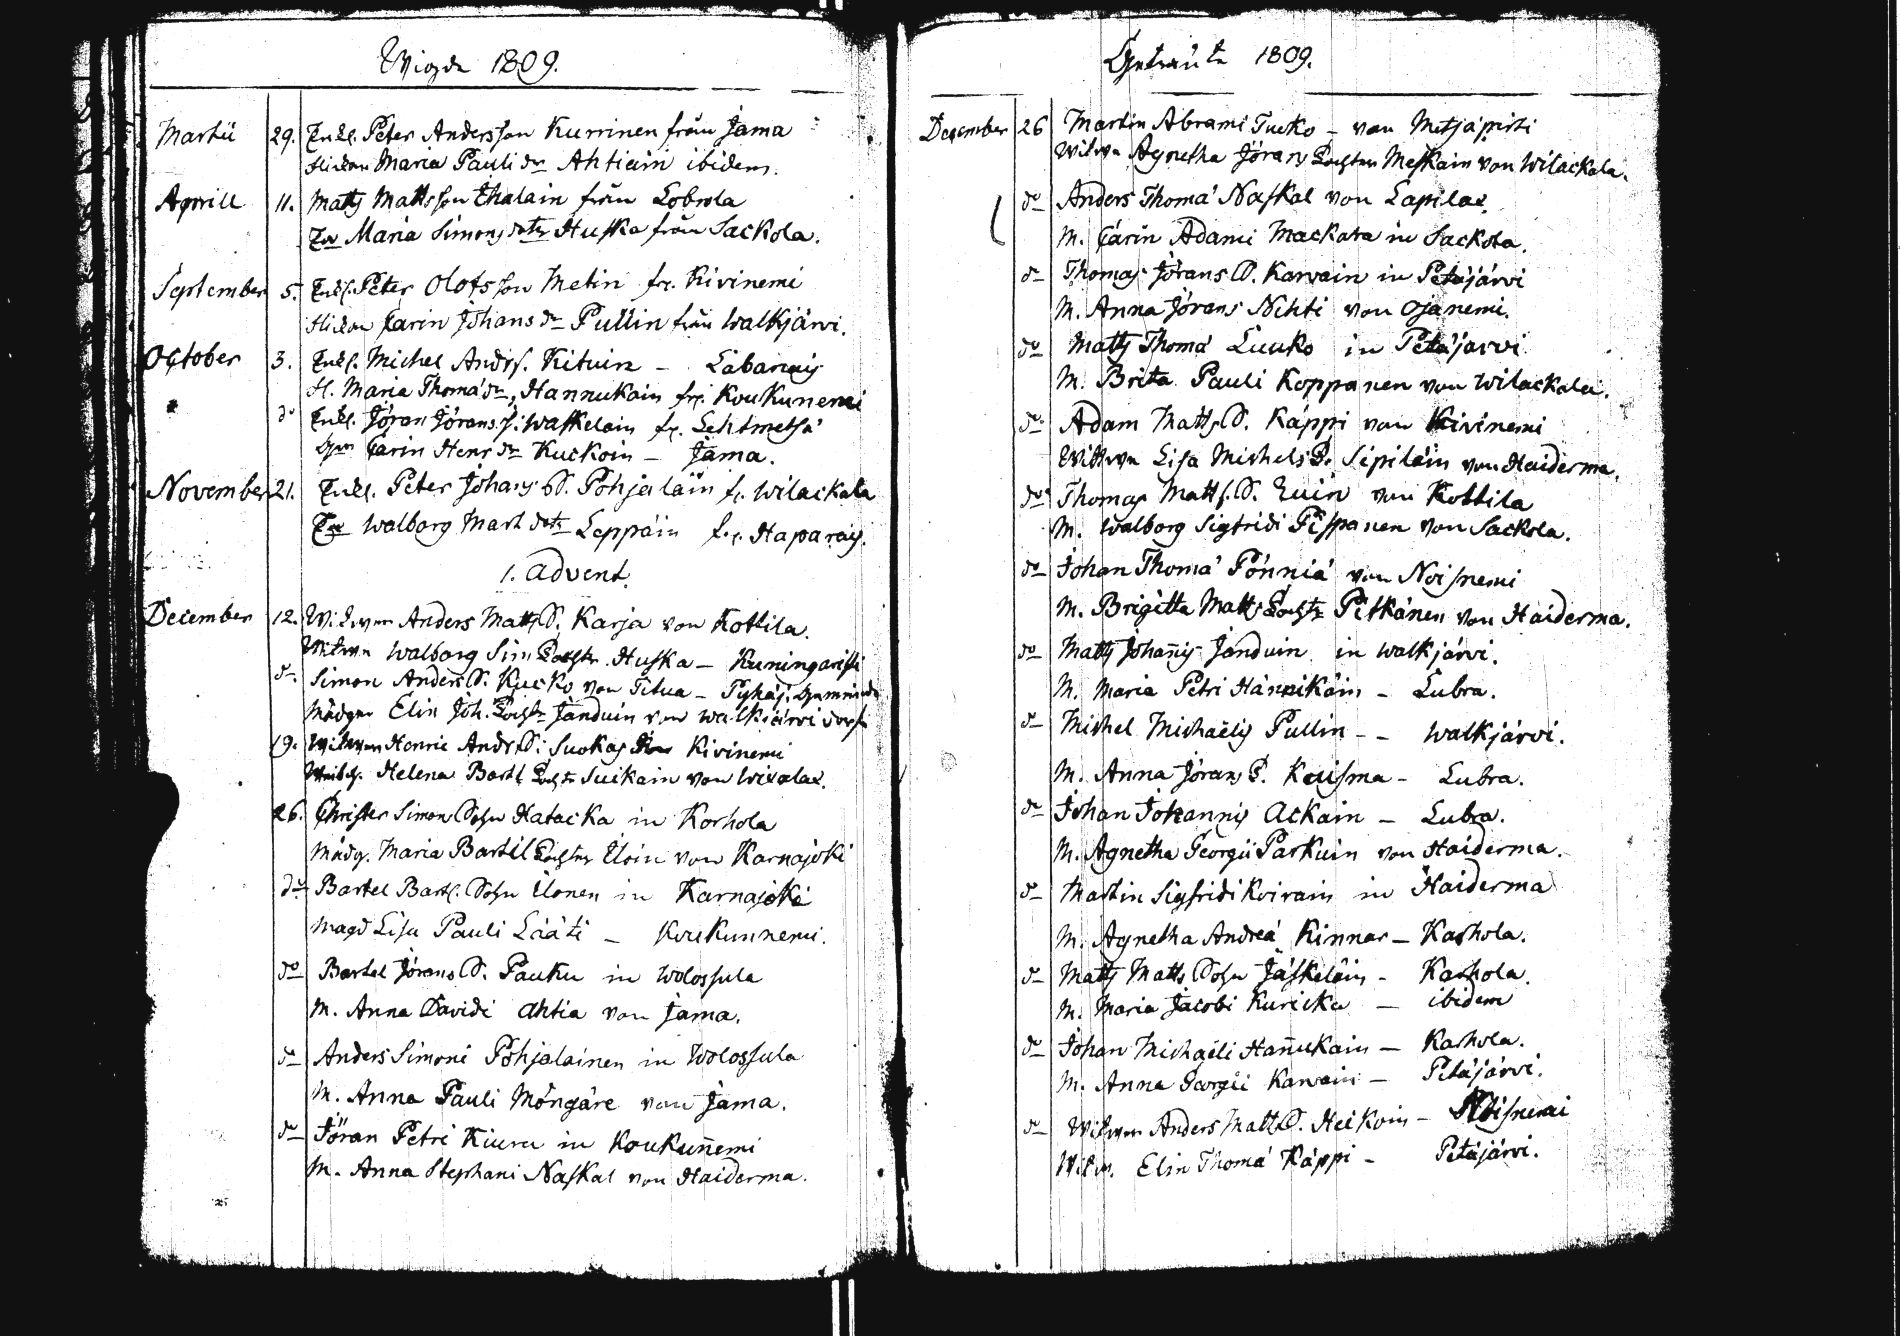 Wigde 1809.
Martii 29. Enkl. Peter Andersson Kurrinen från Jama
Flickan Maria Pauli dr Ahtiain ibidem.
Aprill 11. Matts Mattsson Ihalain från Lobrola
Maria Simons dotr Huska från Sackola.
September 5. Enkl. Peter Olofsson Metin fr. Kivinemi
Flickan Carin Johans dr Pullin från Walkjärvi.
October 3. Enkl. Michel Andrs. Kituin – Labanais
Fl. Maria Thomæ dr, Hannukain frn Koukunemi
do Enkl. Jöran Jörans s. Waskelain fr. Lehtmetsä
Carin Henr dr Kuckoin – Jama.
November 21. Enkl. Peter Johans S. Pohjalain fr. Wilackala
Walborg Mart dotr Leppäin fr. Haparais.
1. Advent.
December 12. Witwer Anders Matts S. Karja von Kottila.
Witwe Walborg Sim Tochtr Huska – Kuningaristi
do Simon Anders S. Kucko von Titua – Pyhäj.
Mädgen Elin Joh. Tochtr Janduin von Walkiärvi dorf
19. Witwer Henric Andr. S. Suokas Kivinemi
Helena Bartl Tochtr Suikain von Wisalas.
26. Christer Simon Sohn Hatacka in Korhola
Mädg. Maria Bartil Tochter Iloin von Karnajoki
do Bartel Bartl. Sohn Ilonen in Karnajoki
Magd Lisa Pauli Lääti – Koukunnemi.
do Bartel Jörans S. Pauku in Wolossula
M. Anna Davidi Ahtia von Jama.
do Anders Simoni Pohjalainen in Wolossula
M. Anna Pauli Möngäre von Jama.
do Jöran Petri Kiuru in Koukun̄emi
M. Anna Stephani Naskal von Haiderma.
Getraute 1809.
December 26 Martin Abrami Tucko – von Metjäpirti
Witwe Agnetha Jörans Tochter Meskain von Wilackala.
do Anders Thomä Naskal von Lapilas.
M. Carin Adami Mackara in Sackola.
do Thomas Jörans S. Karvain in Petäjärvi
M. Anna Jörans Nihti von Ojanemi.
do Matts Thomä Luuko in Petäjärvi
M. Brita Pauli Koppanen von Wilackala.
do Adam Matts S. Käppi von Kivinemi
Wittwe Lisa Michels T. Sipiläin von Haiderma.
do Thomas Matts. S. von Kottila
M. Walborg Sigfridi Pispanen von Sackola.
do Johan Thomä Pönniä von Noisnemi
M. Brigitta Matts Tochtr Pitkänen von Haiderma.
do Matts Johan̄is Janduin in Walkjärvi.
M. Maria Petri Hännikäin – Lubra.
do Michel Michaëlis Pullin – – Walkjärvi.
M. Anna Jörans T. Kuisma – Lubra.
do Johan Johannis Ackain – Lubra.
M. Agnetha Georgii Parkuin von Haiderma.
do Martin Sigfridi Koirain in Haiderma
M. Agnetha Andreä Kinnar – Karhola.
do Matts Matts Sohn Jäskeläin – Karhola.
M. Maria Jacobi Kuricka – ibidem
do Johan Michaëli Han̄ukain – Karhola.
M. Anna Georgii Karvain – Petäjärvi.
do Witwer Anders Matts S. Heikoin – Noisnemi
Witw. Elin Thomä Käppi – Petäjärvi.